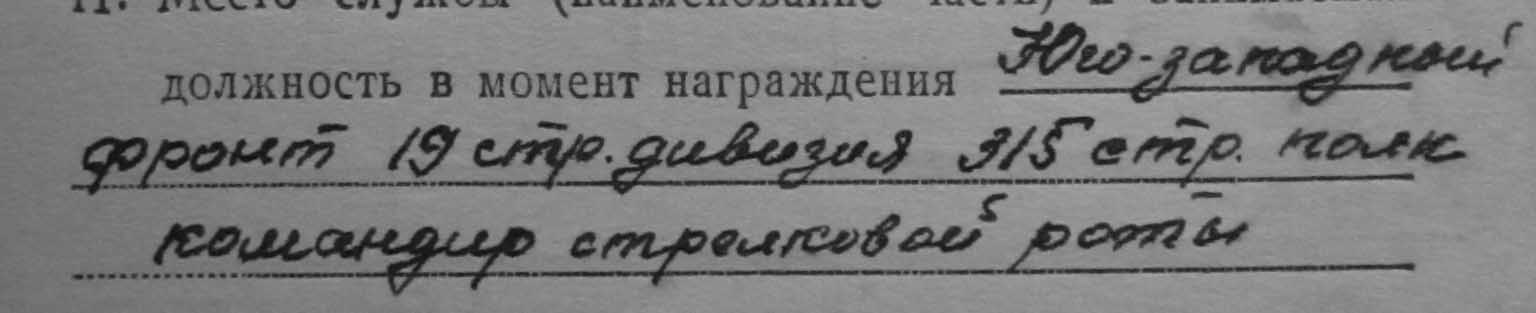 11. Место службы (наименование части) и занимаемая
должность в момент награждения Юго-западный
фронт 19 стр. дивизия 315 стр. полк
командир стрелковой роты